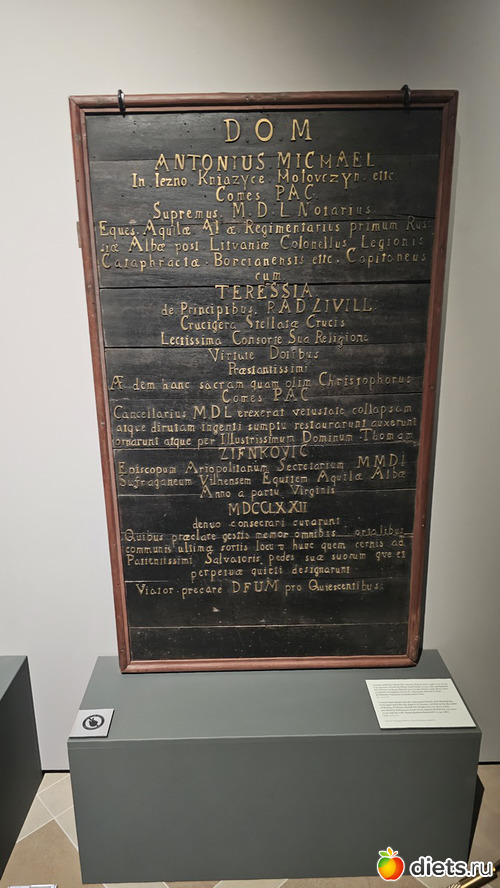 DOM
ANTONIUS MICHAEL
In Iezno Kniazyce Molovczyn ettc
Comes PAC
Supremus M.D.L Notarius
Eques Aquilæ Alæ Regimentarius primum Rus
siæ Albæ post Litvaniæ Colonellus Legionis
Cataphractæ Borcianensis ettc. Capitaneus
cum
TERESSIA
de Principibus RADZIVILL
Crucigera Stellatæ Crucis
Lectissima Consorte Sua Religione
Virtute Dotibus
Præstantissimi
Æ dem hanc sacram quam olim Christophorus
Comes PAC
Cancellarius MDL erexerat vetustate collapsam
atqe dirutam ingenti sumptu restaurarunt auxerunt
iornarunt atque per Illustrissimum Dominum Thomam
ZIENKOVIC
Episcopum Ariopolitanum Secretarium MMDL
Sufraganeum Vilnensem Equitem Aquilæ Albæ
Anno a partu Virginis
MDCCLXXII
denuo consecrari curarunt
Quibus præclare gestis memor omnibus ortalibus
communis ultimæ sortis hunc quem cernis ad
Patientissimi Salvatoris pedes suæ suorum que et
perpetuæ quieti designarunt
Viator precare DEUM pro Quiescentibus
diets.ru